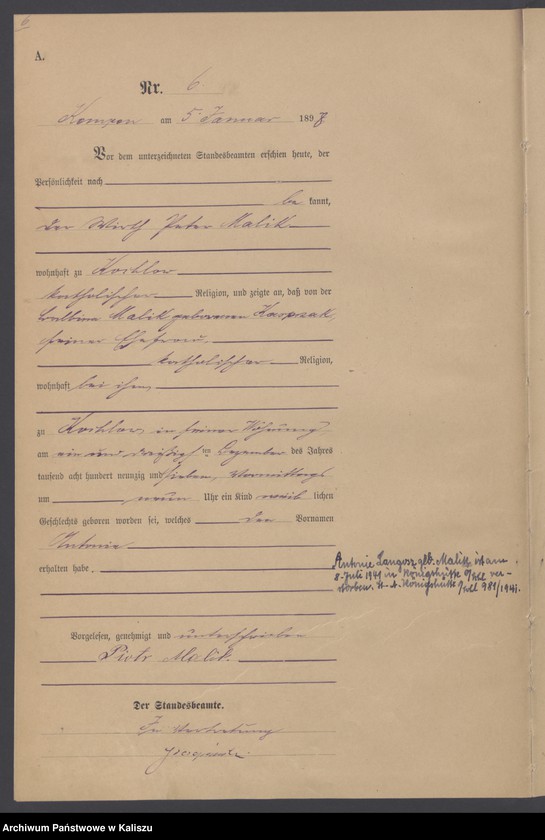 6
A.
Nr. 6
Kempen am 5. Januar 1898
Vor dem unterzeichneten Standesbeamten erschien heute, der
Persönlichkeit nach
be kannt,
der Wirth Peter Malik
wohnhaft zu Kochlow
katholischer Religion, und zeigte an, daß von der
Balbina Malik geborenen Kasprzak
seiner Ehefrau
katholischer Religion,
wohnhaft bei ihm
zu Kochlow in seiner Wohnung
am ein und dreißig ten Dezember des Jahres
tausend acht hundert neunzig und sieben, Vormittags
um neun Uhr ein Kind weib lichen
Geschlechts geboren worden sei, welches den Vornamen
Antonie
erhalten habe.
Antonie Langosz geb. Malik ist am
8. Juli 1941 in Königshütte O/S ver-
storben. St. A. Königshütte 981/1941.
Vorgelesen, genehmigt und unterschrieben
Piotr Malik.
Der Standesbeamte.
In Vertretung
Archiwum Państwowe w Kaliszu